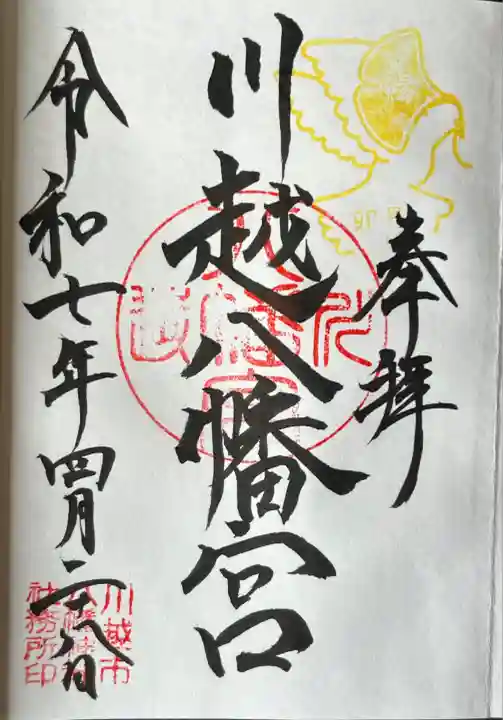 奉拝
川越八幡宮
令和七年四月二十六日
川越市
八幡神社
社務所印